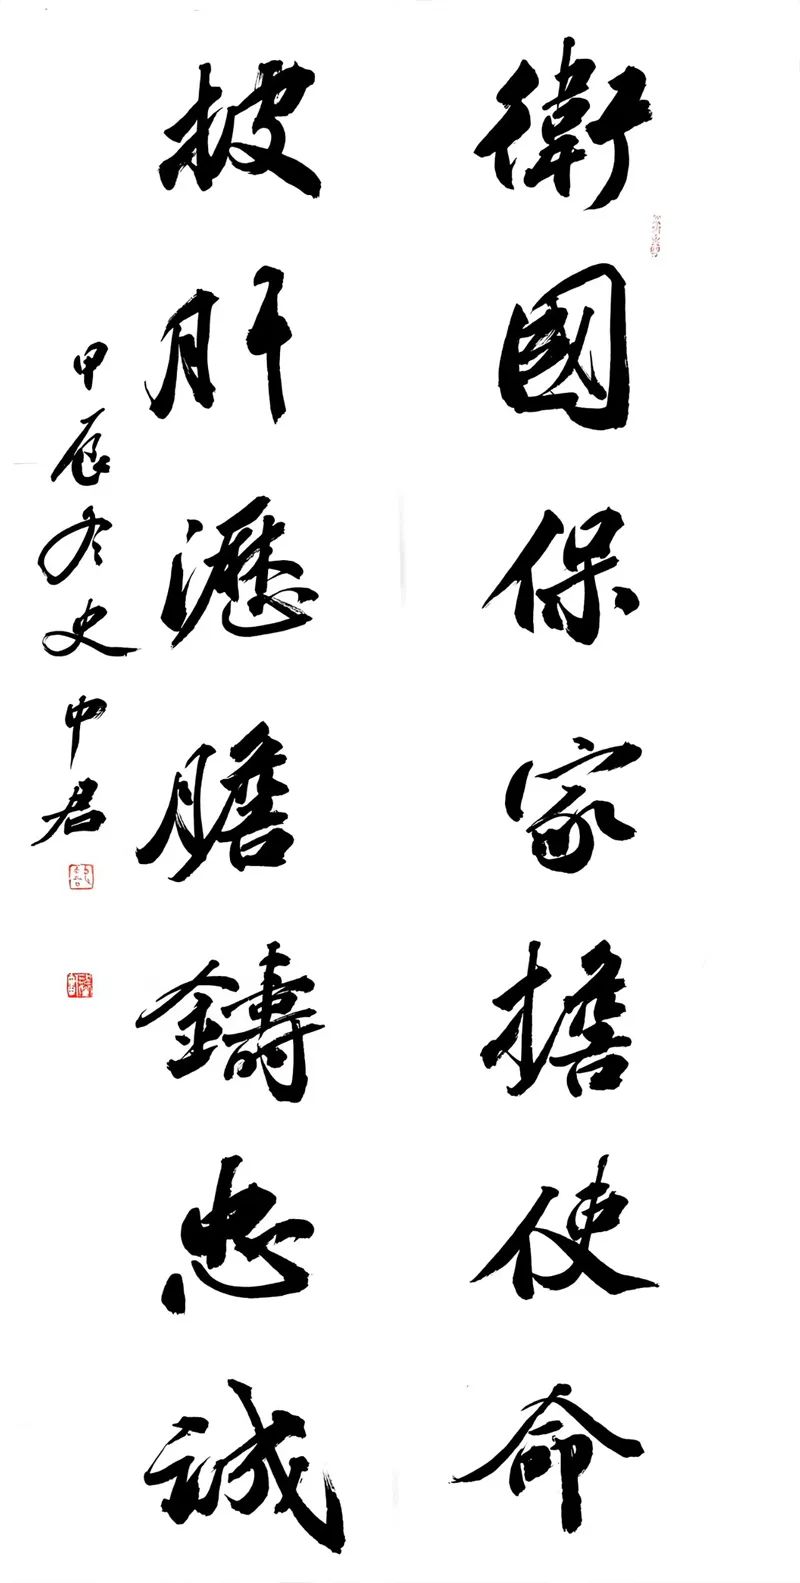 衛國保家擔使命
披肝瀝膽鑄忠誠
甲辰冬史中君